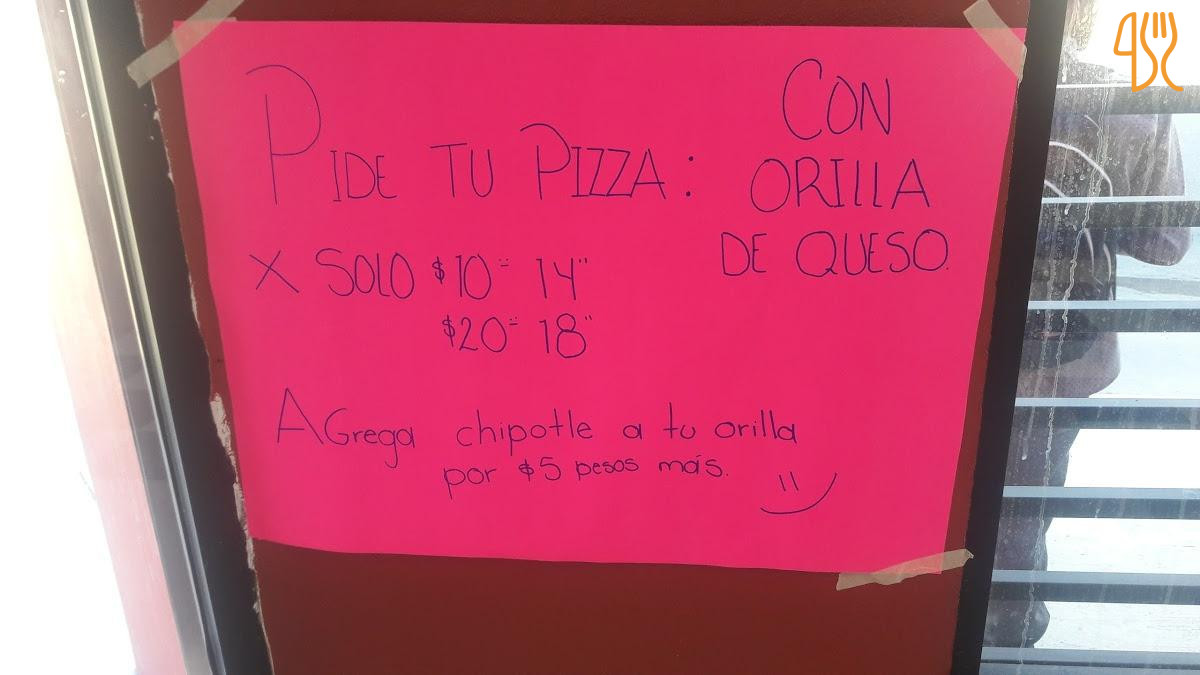 PIDE TU PIZZA: CON ORILLA DE QUESO.
X SOLO $10= 14"
$20= 18"
AGrega chipotle a tu orilla
por $5 pesos más.